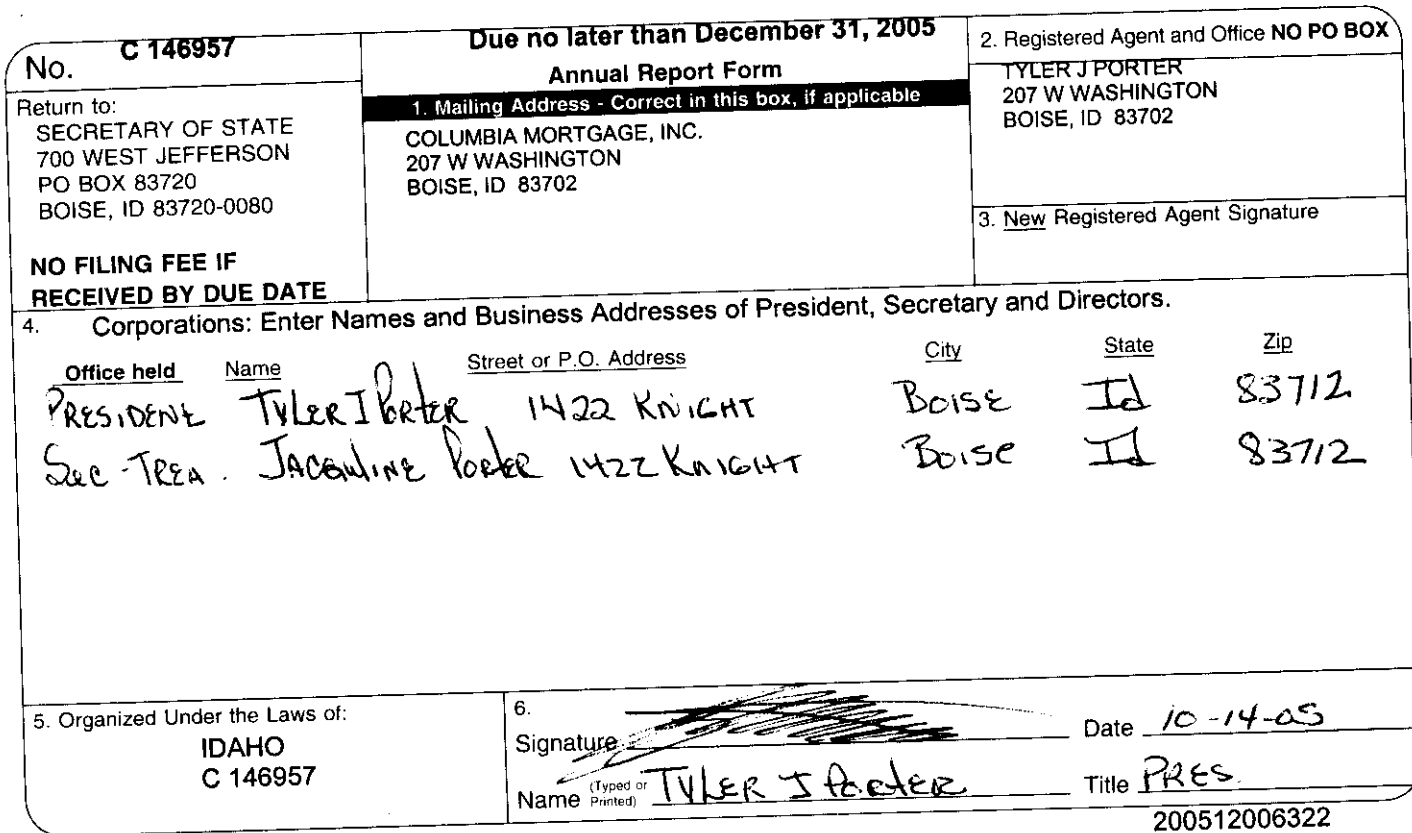 No. C 146957
Return to:
SECRETARY OF STATE
700 WEST JEFFERSON
PO BOX 83720
BOISE, ID 83720-0080
NO FILING FEE IF
RECEIVED BY DUE DATE
Due no later than December 31, 2005
Annual Report Form
1. Mailing Address - Correct in this box, if applicable
COLUMBIA MORTGAGE, INC.
207 W WASHINGTON
BOISE, ID 83702
2. Registered Agent and Office NO PO BOX
TYLER J PORTER
207 W WASHINGTON
BOISE, ID 83702
3. New Registered Agent Signature
4. Corporations: Enter Names and Business Addresses of President, Secretary and Directors.
Office held Name Street or P.O. Address City State Zip
PRESIDENT TYLER J PORTER 1422 KNIGHT BOISE Id 83712
Sec-TREA. JACQULINE PORTER 1422 KNIGHT BOISE Id 83712
5. Organized Under the Laws of:
IDAHO
C 146957
6.
Signature Date 10-14-05
Name (Typed or Printed) TYLER J PORTER Title PRES.
200512006322